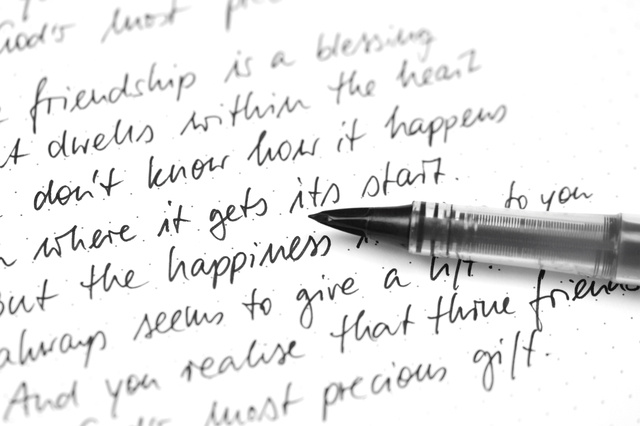 God's most
friendship is a blessing
dwells within the heart
don't know how it happens
where it gets its start.
to you
But the happiness
always seems to give a lift.
And you realise that thine
God's most precious gift.